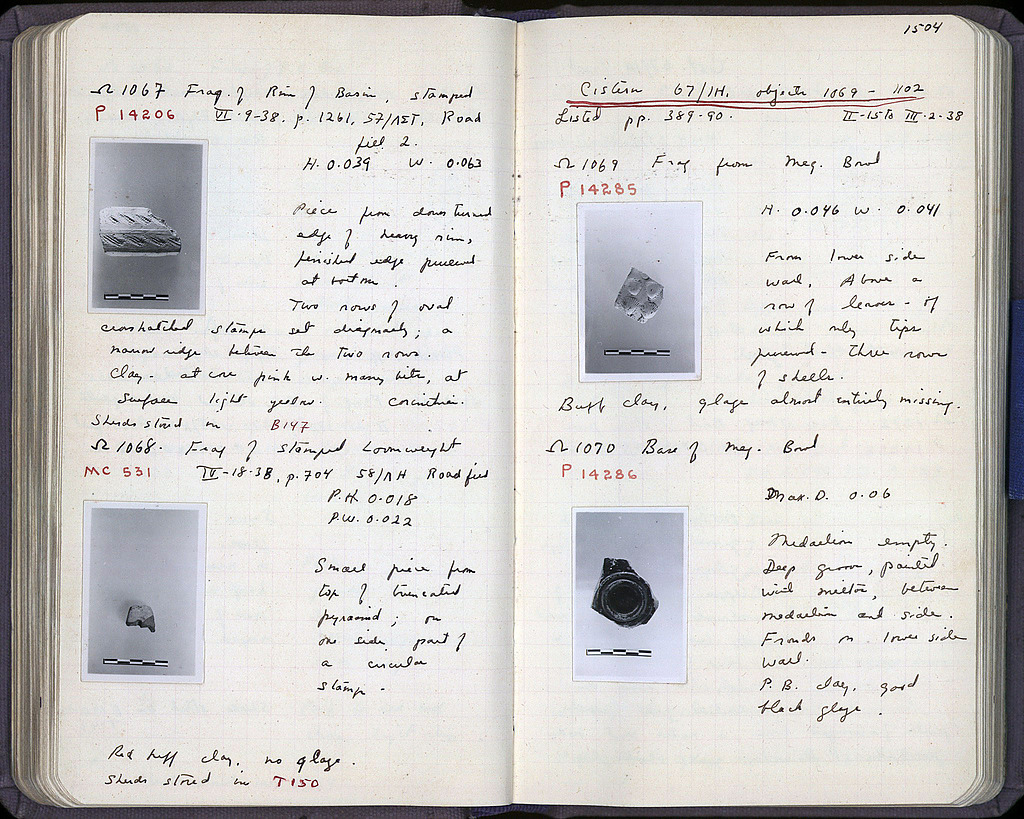 Ω 1067 Frag. of Rim of Basin, stamped
P 14206 VI-9-38, p. 1261, 57/ΛΣΤ, Road
fill 2.
H. 0.039 W. 0.063
Piece from downturned
edge of heavy rim,
finished edge preserved
at bottom.
Two rows of oval
crosshatched stamps set diagonally; a
narrow ridge between the two rows.
Clay - at core pink w. many bits, at
surface light yellow. Corinthian.
Sherds stored in B147
Ω 1068. Frag of stamped Loomweight
MC 531 IV-18-38, p. 704 58/ΛΗ Road fill
P.H. 0.018
P.W. 0.022
Small piece from
top of truncated
pyramid; on
one side, part of
a circular
stamp.
Red buff clay, no glaze.
Sherds stored in T150
1504
Cistern 67/ΙΗ, objects 1069 - 1102
Listed pp. 389-90. II-15 to III-2-38
Ω 1069 Frag from Meg. Bowl
P 14285
H. 0.046 W. 0.041
From lower side
wall, Above a
row of leaves - of
which only tips
preserved - three rows
of shells.
Buff clay, glaze almost entirely missing.
Ω 1070 Base of Meg. Bowl
P 14286
Max. D. 0.06
Medallion empty.
Deep groove, painted
with miltos, between
medallion and side.
Fronds on lower side
wall.
P.B. clay, good
black glaze.